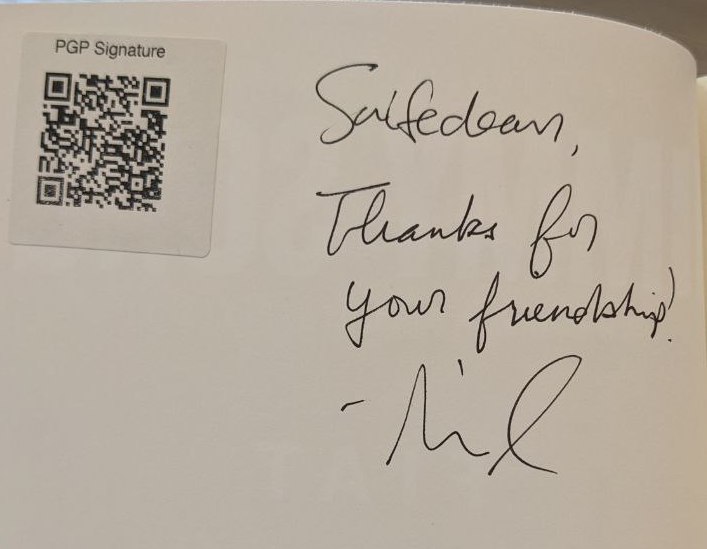 PGP Signature
Saifedean,
Thanks for
your friendship!